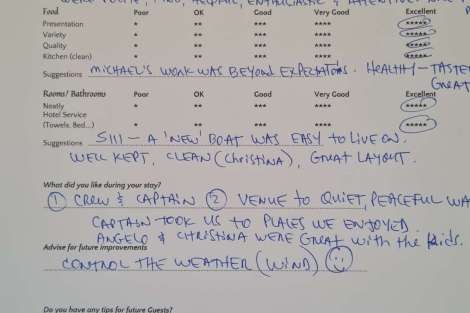 WERE POLITE, KIND, HELPFUL, ENTHUSIASTIC & ATTENTIVE
Food Poor OK Good Very Good Excellent
Presentation * ** *** **** *****
Variety * ** *** **** *****
Quality * ** *** **** *****
Kitchen (clean) * ** *** **** *****
Suggestions MICHAEL'S WORK WAS BEYOND EXPECTATIONS. HEALTHY - TASTE
GREAT
Rooms/ Bathrooms Poor OK Good Very Good Excellent
Neatly * ** *** **** *****
Hotel Service
(Towels, Bed...) * ** *** **** *****
Suggestions - A 'NEW' BOAT WAS EASY TO LIVE ON.
WELL KEPT, CLEAN (CHRISTINA), GREAT LAYOUT.
What did you like during your stay?
① CREW & CAPTAIN ② VENUE TO QUIET, PEACEFUL WA
CAPTAIN TOOK US TO PLACES WE ENJOYED.
ANGELO & CHRISTINA WERE GREAT with the kids.
Advise for future improvements
CONTROL THE WEATHER (WIND)
Do you have any tips for future Guests?